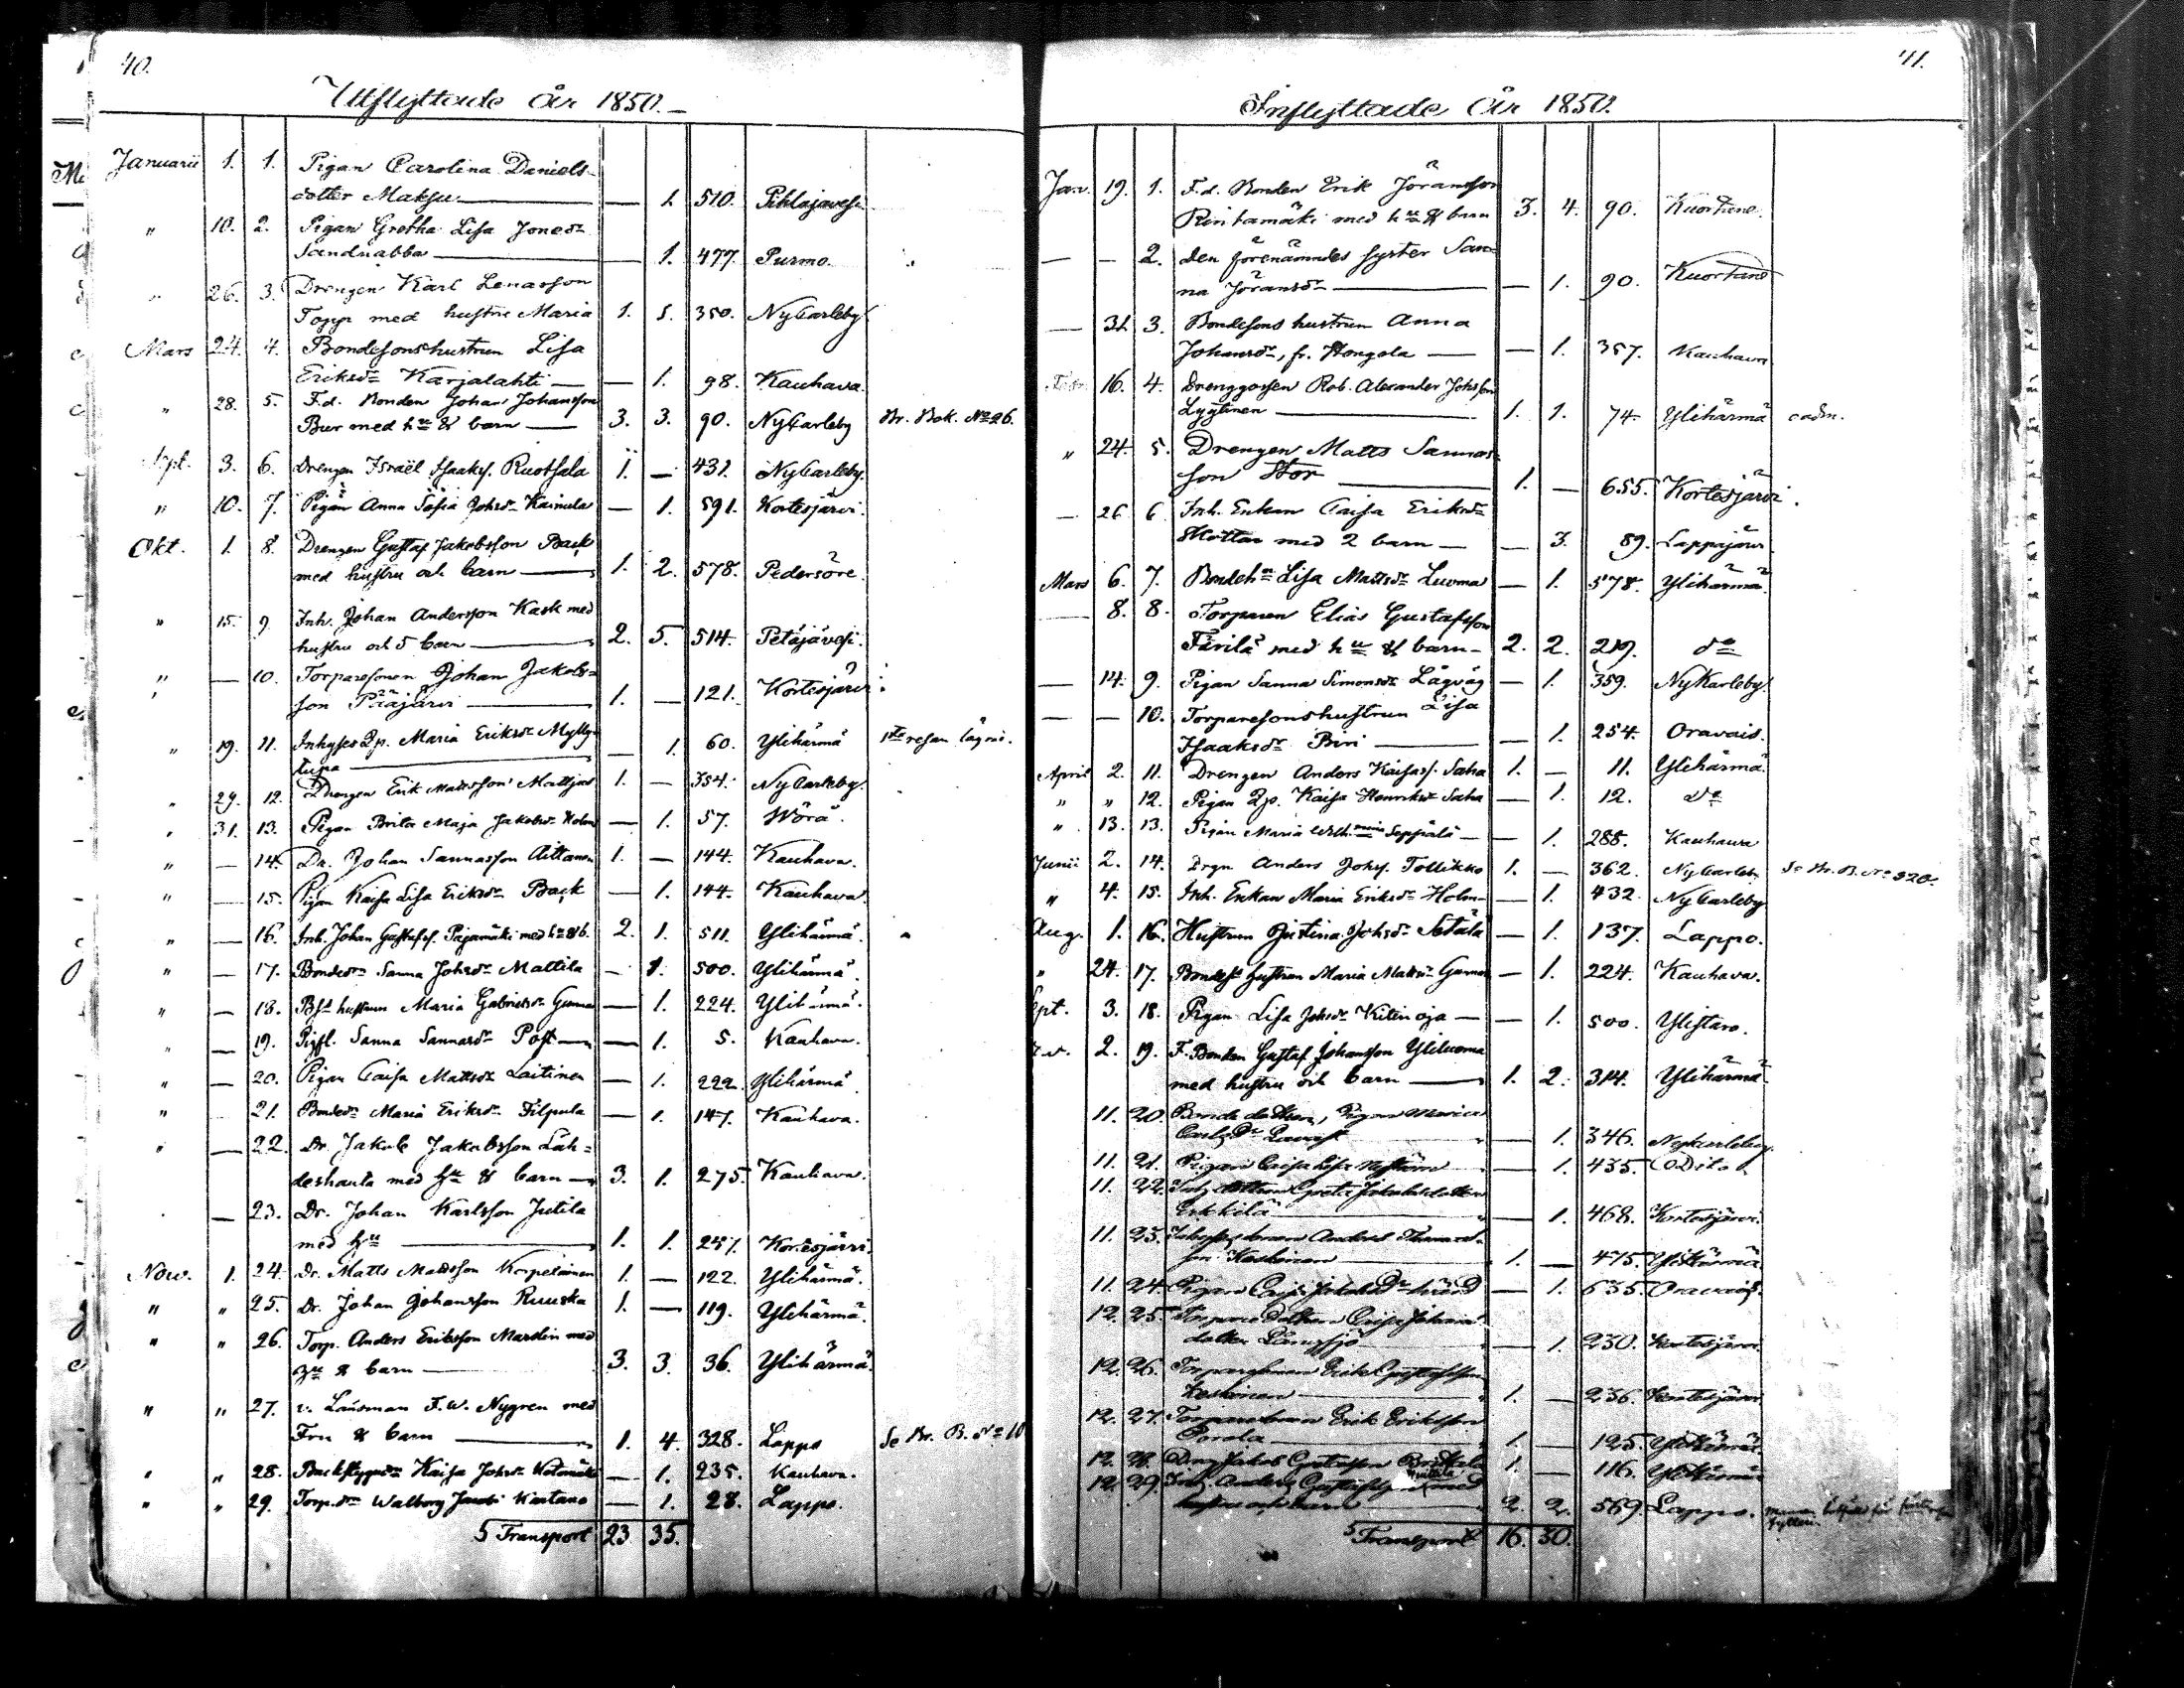 40.
Utflyttade år 1850.
Januarii 1. 1. Pigan Carolina Daniels-
dotter Maksu — 1. 510. Pihlajavesi
" 10. 2. Pigan Gretha Lisa Jonesdr
Sandnabba — 1. 477. Purmo.
" 26. 3. Drengen Karl Lenasson
Topp med hustru Maria 1. 1. 350. NyCarleby
Mars 24. 4. Bondesonshustrun Lisa
Eriksdr Karjalahti — 1. 98. Kauhava.
" 28. 5. F.d. Bonden Johan Johansson
Bur med hu & barn 3. 3. 90. NyCarleby Br. Bok. No 26.
Sept. 3. 6. Drengen Israël Isaaks. Ruotsala 1. — 431. NyCarleby.
" 10. 7. Pigan Anna Sofia Johsdr Kaimula — 1. 591. Kortesjärvi.
Okt. 1. 8. Drengen Gustaf Jakobsson Back
med hustru och barn 1. 2. 578. Pedersöre.
" 15. 9. Inh. Johan Andersson Kask med
hustru och 5 barn 2. 5. 514. Petäjävesi.
" — 10. Torparesonen Johan Jakobs-
son Pääjärvi 1. — 121. Kortesjärvi
" 19. 11. Inhyses Qp. Maria Eriksdr Mylly-
tupa — 1. 60. Ylihärmä
" 29. 12. Drengen Erik Mattsson Mattjus 1. — 354. NyCarleby.
" 31. 13. Pigan Brita Maja Jakobsdr Holm — 1. 57. Wörå.
" — 14. Dr. Johan Sannasson Aittanen 1. — 144. Kauhava.
" — 15. Pigan Kaisa Lisa Eriksdr Back — 1. 144. Kauhava.
" — 16. Inh. Johan Gustafss. Pajamäki med hu & b. 2. 1. 511. Ylihärmä.
" — 17. Bondedr Sanna Johsdr Mattila — 1. 500. Ylihärmä.
" — 18. Bss hustrun Maria Gabrielsdr Gunnar — 1. 224. Ylihärmä.
" — 19. Pigfl. Sanna Sannasdr Post — 1. 5. Kauhava.
" — 20. Pigan Caisa Mattsdr Laitinen — 1. 222. Ylihärmä
" — 21. Bondedr Maria Eriksdr Filpula — 1. 147. Kauhava.
" — 22. Dr. Jakob Jakobsson Läh-
deshauta med hu & barn 3. 1. 275. Kauhava.
— 23. Dr. Johan Karlsson Jutila
med hu 1. 1. 257. Kortesjärvi.
Nov. 1. 24. Dr. Matts Mattsson Korpelainen 1. — 122. Ylihärmä.
" " 25. Dr. Johan Johansson Ruuska 1. — 119. Ylihärmä.
" " 26. Torp. Anders Eriksson Marolin med
hu & barn 3. 3. 36. Ylihärmä.
" " 27. v. Länsman F. W. Nygren med
Fru & barn 1. 4. 328. Lappo Se Br. B. No 10
" " 28. Kaisa Johsdr — 1. 235. Kauhava.
" " 29. Torp.dr Walborg Jacobs Kartano — 1. 28. Lappo.
Transport 23. 35.
41.
Inflyttade År 1850.
Jan. 19. 1. F.d. Bonden Erik Jöransson
Rintamäki med hu & barn 3. 4. 90. Kuortane.
— — 2. den förenämndes syster San-
na Jöransdr — 1. 90. Kuortane
— 31. 3. Bondesons hustrun Anna
Johansdr, fr. Hongola — 1. 357. Kauhava
Febr. 16. 4. Drenggossen Rob. Alexander Johsson
Lyytinen 1. 1. 74. Ylihärmä
" 24. 5. Drengen Matts Sannas-
son Stor 1. — 655. Kortesjärvi.
— 26. 6. Inh. Enkan Caisa Eriksdr
Hottar med 2 barn — 3. 89. Lappajärvi.
Mars 6. 7. Bondehu Lisa Mattsdr Luoma — 1. 578. Ylihärmä.
— 8. 8. Torparen Elias Gustafsson
Färilä med hu & barn 2. 2. 219. do
— 14. 9. Pigan Sanna Simonsdr Lågväg — 1. 359. NyKarleby.
— — 10. Torparesonshustrun Lisa
Isaaksdr Biri — 1. 254. Oravais.
April 2. 11. Drengen Anders Kaisas. Saha 1. — 11. Ylihärmä.
" " 12. Pigan Qp. Kaisa Henriksdr Saha — 1. 12. do
" 13. 13. Pigan Maria Wilhmina Seppälä — 1. 288. Kauhava
Junii 2. 14. Drgn Anders Johss. Tollikko 1. — 362. NyCarleby Se Br. B. No 320.
" 4. 15. Inh. Enkan Maria Eriksdr Holm — 1. 432. NyCarleby
Aug. 1. 16. Hustrun Justina Johsdr Setälä — 1. 137. Lappo.
" 24. 17. Bondess hustrun Maria Mattsdr Gunnar — 1. 224. Kauhava.
Sept. 3. 18. Pigan Lisa Johsdr Kitinoja — 1. 500. Ylistaro.
2. 19. F. Bonden Gustaf Johansson Yliluoma
med hustru och barn 1. 2. 314. Ylihärmä
11. 20. Bonde dottren, Pigan Maria
Carlsdr — 1. 346. Nykarleby
11. 21. Pigan Caisa Lisa — 1. 435. Dito
11. 22. dottren Greta Jakobsdotter
Erkkilä — 1. 468. Kortesjärvi.
11. 23. Anders Thomas-
son Keskinen 1. — 475. Ylihärmä
11. 24. Pigan Caisa Jakobsdr — 1. 635. Oravais.
12. 25. Torpare dottren Caisa Johans-
dotter Långsjö — 1. 230. Kortesjärvi
12. 26. Torparesonen Erik Gustafsson
Keskinen 1. — 236. Kortesjärvi
12. 27. Torparesonen Erik Eriksson
Porola 1. — 125. Ylihärmä
12. 28. Dreng Jakob Gustafsson 1. — 116. Ylihärmä
12. 29. Inh. Anders Gustafsson med
hustru och barn 2. 2. 569. Lappo.
Transport 16. 30.